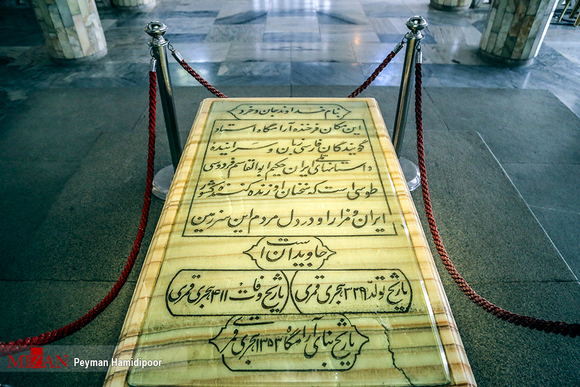 بنام خداوند جان و خرد
این مکان فرخنده آرامگاه استاد
گویندگان فارسی زبان و سراینده
داستانهای ملی ایران حکیم ابوالقاسم فردوسی
طوسی است که سخنان او زنده کننده کشور
ایران و مزار او در دل مردم این سرزمین
جاویدان است
تاریخ تولد ۳۲۹ هجری قمری
تاریخ وفات ۴۱۱ هجری قمری
تاریخ بنای آرامگاه ۱۳۵۳ هجری قمری
MIZAN
Peyman Hamidipoor